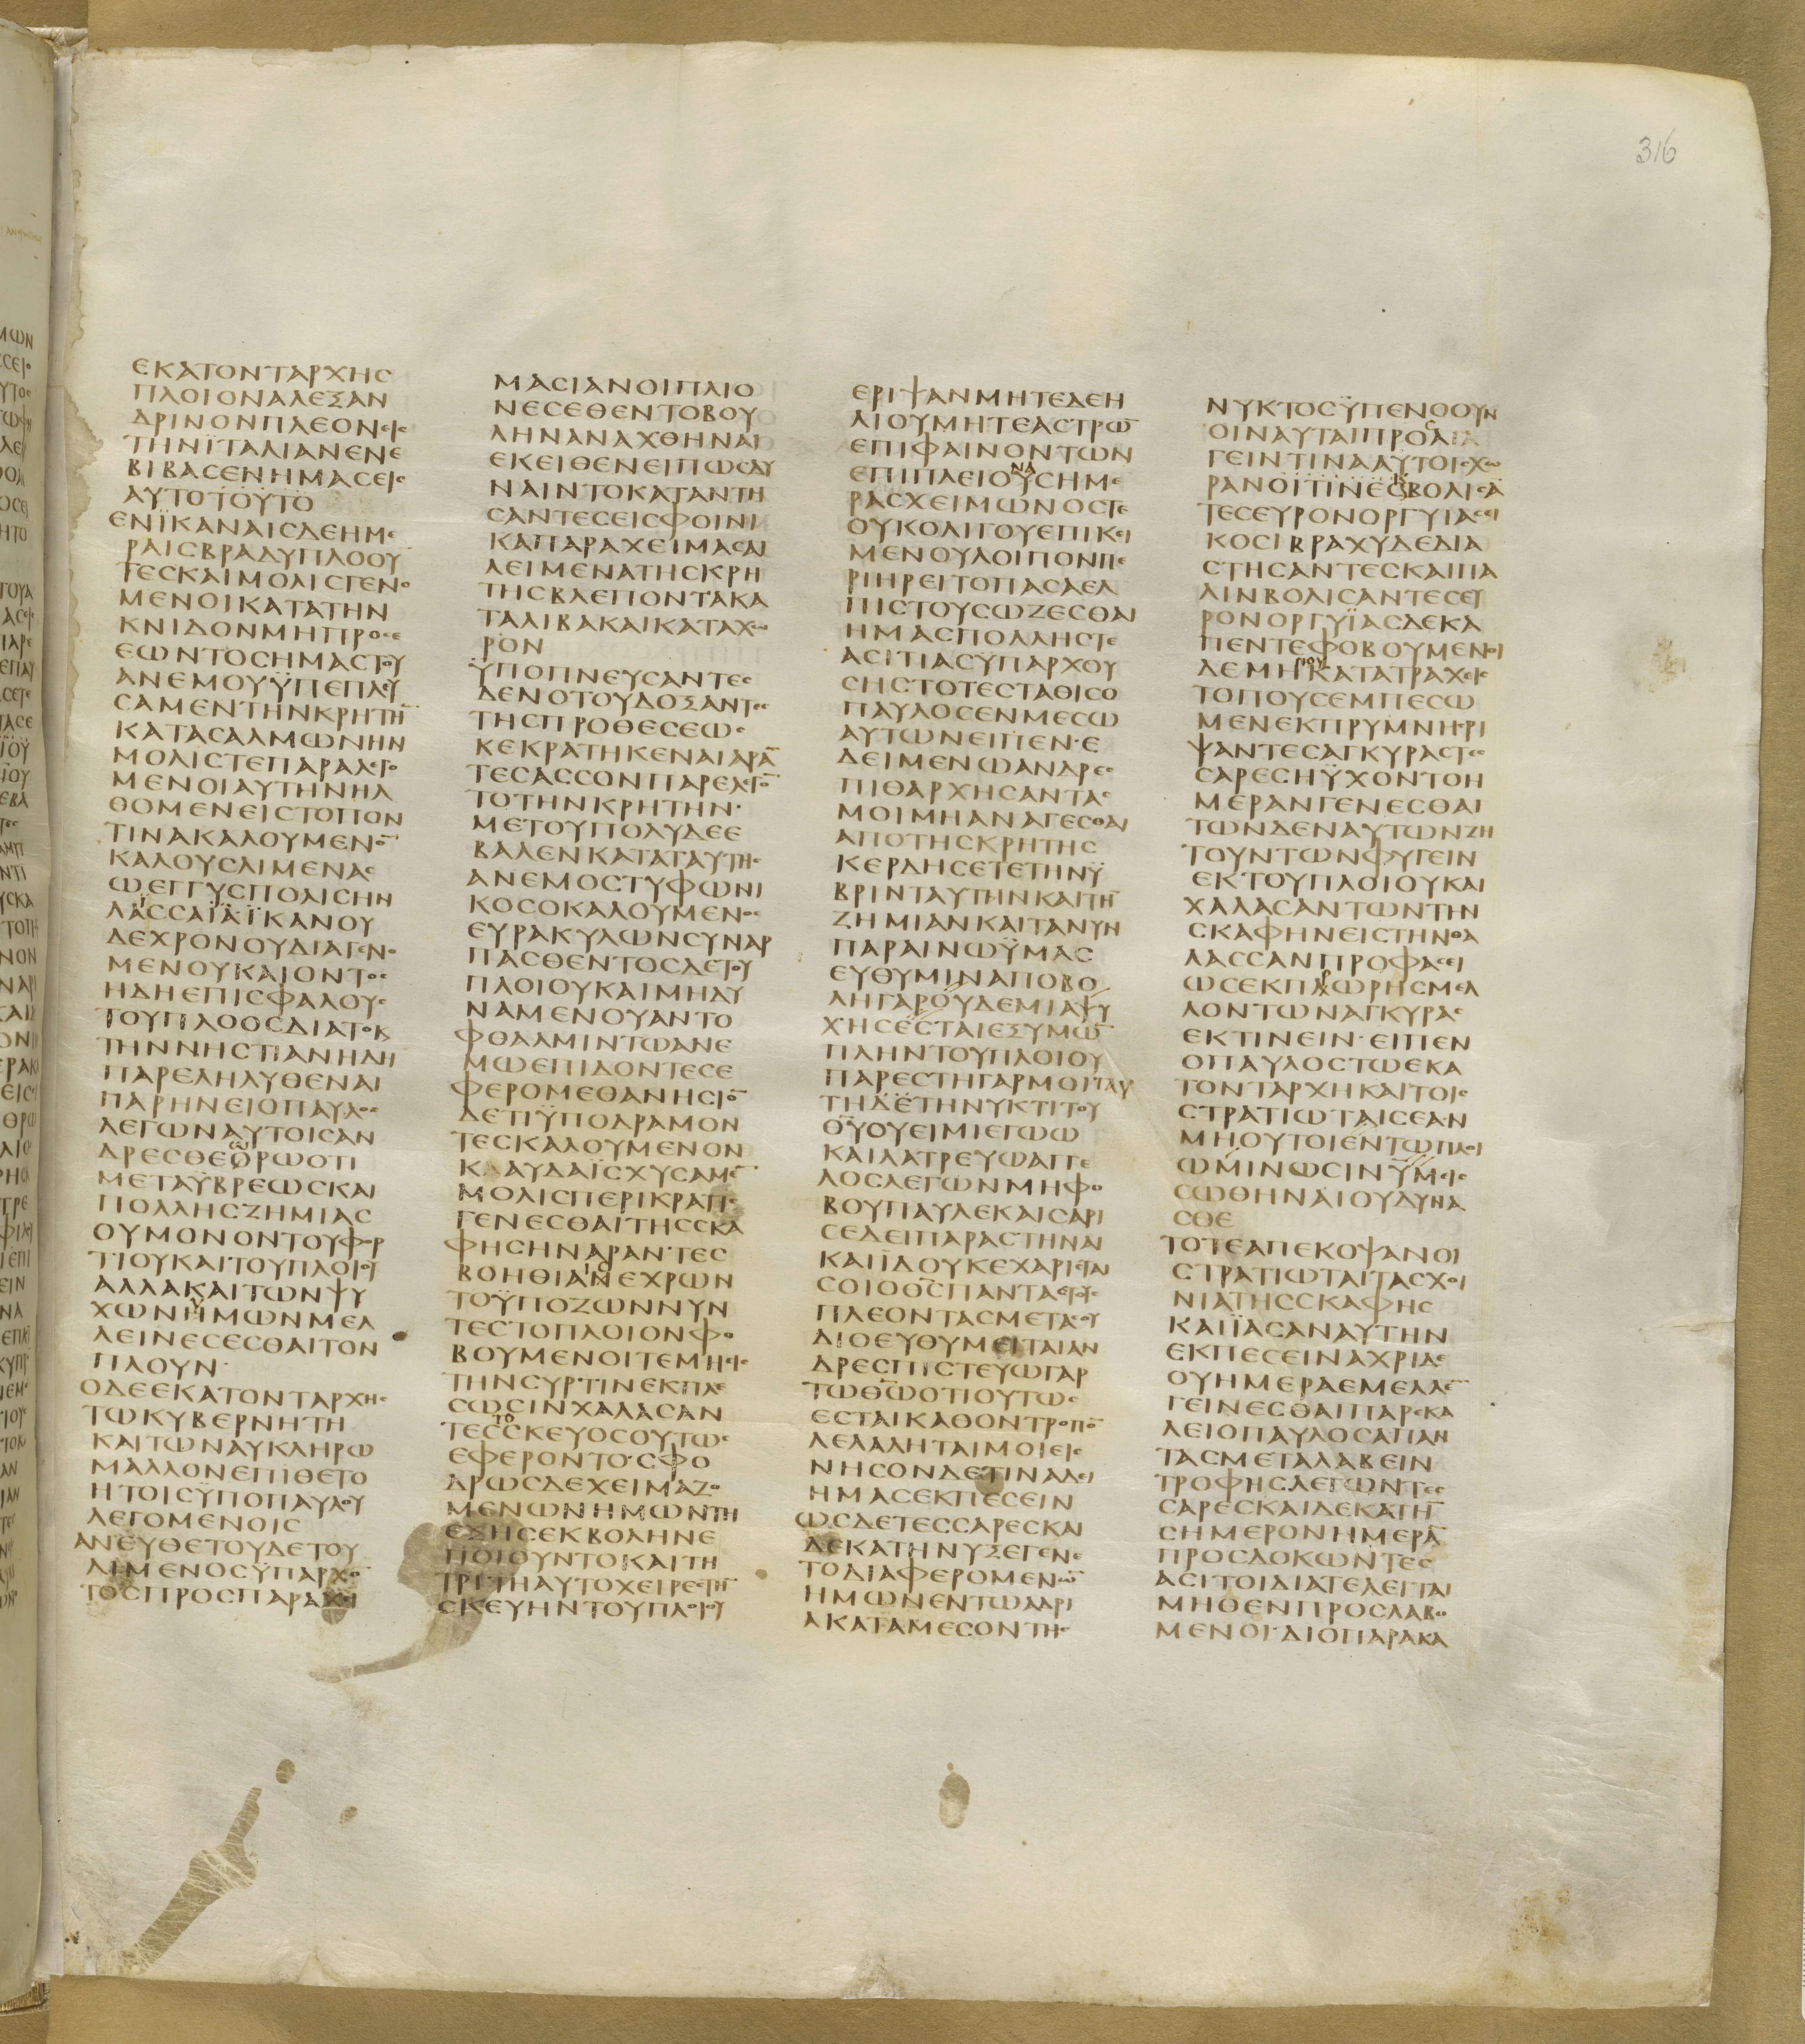 316
ΕΚΑΤΟΝΤΑΡΧΗϹ
ΠΛΟΙΟΝΑΛΕΞΑΝ
ΔΡΙΝΟΝΠΛΕΟΝΕΙϹ
ΤΗΝΪΤΑΛΙΑΝΕΝΕ
ΒΙΒΑϹΕΝΗΜΑϹΕΙϹ
ΑΥΤΟΤΟΥΤΟ
ΕΝΪΚΑΝΑΙϹΔΕΗΜΕ
ΡΑΙϹΒΡΑΔΥΠΛΟΟΥ
ΤΕϹΚΑΙΜΟΛΙϹΓΕΝΟ
ΜΕΝΟΙΚΑΤΑΤΗΝ
ΚΝΙΔΟΝΜΗΠΡΟϹΕ
ΕΩΝΤΟϹΗΜΑϹΤΟΥ
ΑΝΕΜΟΥΫΠΕΠΛΕΥ
ϹΑΜΕΝΤΗΝΚΡΗΤΗ̅
ΚΑΤΑϹΑΛΜΩΝΗΝ
ΜΟΛΙϹΤΕΠΑΡΑΛΕΓΟ
ΜΕΝΟΙΑΥΤΗΝΗΛ
ΘΟΜΕΝΕΙϹΤΟΠΟΝ
ΤΙΝΑΚΑΛΟΥΜΕΝΟ̅
ΚΑΛΟΥϹΛΙΜΕΝΑϹ
ΩΕΓΓΥϹΠΟΛΙϹΗΝ
ΛΑϹϹΑΪΑΪΚΑΝΟΥ
ΔΕΧΡΟΝΟΥΔΙΑΓΕΝΟ
ΜΕΝΟΥΚΑΙΟΝΤΟϹ
ΗΔΗΕΠΙϹΦΑΛΟΥϹ
ΤΟΥΠΛΟΟϹΔΙΑΤΟΚ
ΤΗΝΝΗϹΤΙΑΝΗΔΗ
ΠΑΡΕΛΗΛΥΘΕΝΑΙ
ΠΑΡΗΝΕΙΟΠΑΥΛΟϹ
ΛΕΓΩΝΑΥΤΟΙϹΑΝ
ΔΡΕϹΘΕΟΡΩΟΤΙ
ΜΕΤΑΫΒΡΕΩϹΚΑΙ
ΠΟΛΛΗϹΖΗΜΙΑϹ
ΟΥΜΟΝΟΝΤΟΥΦΟΡ
ΤΙΟΥΚΑΙΤΟΥΠΛΟΙΟΥ
ΑΛΛΑΚΑΙΤΩΝΨΥ
ΧΩΝΗΜΩΝΜΕΛ
ΛΕΙΝΕϹΕϹΘΑΙΤΟΝ
ΠΛΟΥΝ·
ΟΔΕΕΚΑΤΟΝΤΑΡΧΗϹ
ΤΩΚΥΒΕΡΝΗΤΗ
ΚΑΙΤΩΝΑΥΚΛΗΡΩ
ΜΑΛΛΟΝΕΠΙΘΕΤΟ
ΗΤΟΙϹΥΠΟΠΑΥΛΟΥ
ΛΕΓΟΜΕΝΟΙϹ
ΑΝΕΥΘΕΤΟΥΔΕΤΟΥ
ΛΙΜΕΝΟϹΫΠΑΡΧΟ̅
ΤΟϹΠΡΟϹΠΑΡΑΧΙ
ΜΑϹΙΑΝΟΙΠΛΙΟ
ΝΕϹΕΘΕΝΤΟΒΟΥ
ΛΗΝΑΝΑΧΘΗΝΑΙ
ΕΚΕΙΘΕΝΕΙΠΩϹΔΥ
ΝΑΙΝΤΟΚΑΤΑΝΤΗ
ϹΑΝΤΕϹΕΙϹΦΟΙΝΙ
ΚΑΠΑΡΑΧΕΙΜΑϹΑΙ
ΛΕΙΜΕΝΑΤΗϹΚΡΗ
ΤΗϹΒΛΕΠΟΝΤΑΚΑ
ΤΑΛΙΒΑΚΑΙΚΑΤΑΧΩ
ΡΟΝ
ΫΠΟΠΝΕΥϹΑΝΤΕϹ
ΔΕΝΟΤΟΥΔΟΞΑΝΤΕϹ
ΤΗϹΠΡΟΘΕϹΕΩϹ
ΚΕΚΡΑΤΗΚΕΝΑΙΑΡΑ̅
ΤΕϹΑϹϹΟΝΠΑΡΕΛΕΓΟ̅
ΤΟΤΗΝΚΡΗΤΗΝ·
ΜΕΤΟΥΠΟΛΥΔΕΕ
ΒΑΛΕΝΚΑΤΑΤΑΥΤΗϹ
ΑΝΕΜΟϹΤΥΦΩΝΙ
ΚΟϹΟΚΑΛΟΥΜΕΝΟϹ
ΕΥΡΑΚΥΛΩΝϹΥΝΑΡ
ΠΑϹΘΕΝΤΟϹΔΕΤΟΥ
ΠΛΟΙΟΥΚΑΙΜΗΔΥ
ΝΑΜΕΝΟΥΑΝΤΟ
ΦΘΑΛΜΙΝΤΩΑΝΕ
ΜΩΕΠΙΔΟΝΤΕϹΕ
ΦΕΡΟΜΕΘΑΝΗϹΙΟ̅
ΔΕΤΙΫΠΟΔΡΑΜΟΝ
ΤΕϹΚΑΛΟΥΜΕΝΟΝ
ΚΛΑΥΔΑΪϹΧΥϹΑΜΕ̅
ΜΟΛΙϹΠΕΡΙΚΡΑΤΙϹ
ΓΕΝΕϹΘΑΙΤΗϹϹΚΑ
ΦΗϹΗΝΑΡΑΝ·ΤΕϹ
ΒΟΗΘΙΑΝΕΧΡΩΝ
ΤΟΫΠΟΖΩΝΝΥΝ
ΤΕϹΤΟΠΛΟΙΟΝΦΟ
ΒΟΥΜΕΝΟΙΤΕΜΗΕΙϹ
ΤΗΝϹΥΡΤΙΝΕΚΠΕ
ϹΩϹΙΝΧΑΛΑϹΑΝ
ΤΕϹϹΚΕΥΟϹΟΥΤΩϹ
ΕΦΕΡΟΝΤΟ·ϹΦΟ
ΔΡΩϹΔΕΧΕΙΜΑΖΟ
ΜΕΝΩΝΗΜΩΝΤΗ
ΕΞΗϹΕΚΒΟΛΗΝΕ
ΠΟΙΟΥΝΤΟΚΑΙΤΗ
ΤΡΙΤΗΑΥΤΟΧΕΙΡΕϹΤΗ̅
ϹΚΕΥΗΝΤΟΥΠΛΟΙΟΥ
ΕΡΙΨΑΝΜΗΤΕΔΕΗ
ΛΙΟΥΜΗΤΕΑϹΤΡΩ̅
ΕΠΙΦΑΙΝΟΝΤΩΝ
ΕΠΙΠΛΕΙΟΥϹΗΜΕ
ΡΑϹΧΕΙΜΩΝΟϹΤΕ
ΟΥΚΟΛΙΓΟΥΕΠΙΚΕΙ
ΜΕΝΟΥΛΟΙΠΟΝΠΕ
ΡΙΗΡΕΙΤΟΠΑϹΑΕΛ
ΠΙϹΤΟΥϹΩΖΕϹΘΑΙ
ΗΜΑϹΠΟΛΛΗϹΤΕ
ΑϹΙΤΙΑϹΫΠΑΡΧΟΥ
ϹΗϹΤΟΤΕϹΤΑΘΙϹΟ
ΠΑΥΛΟϹΕΝΜΕϹΩ
ΑΥΤΩΝΕΙΠΕΝ·Ε
ΔΕΙΜΕΝΩΑΝΔΡΕϹ
ΠΙΘΑΡΧΗϹΑΝΤΑϹ
ΜΟΙΜΗΑΝΑΓΕϹΘΑΙ
ΑΠΟΤΗϹΚΡΗΤΗϹ
ΚΕΡΔΗϹΕΤΕΤΗΝΫ
ΒΡΙΝΤΑΥΤΗΝΚΑΙΤΗ̅
ΖΗΜΙΑΝΚΑΙΤΑΝΥΝ
ΠΑΡΑΙΝΩΫΜΑϹ
ΕΥΘΥΜΙΝΑΠΟΒΟ
ΛΗΓΑΡΟΥΔΕΜΙΑΨΥ
ΧΗϹΕϹΤΑΙΕΞΥΜΩ̅
ΠΛΗΝΤΟΥΠΛΟΙΟΥ
ΠΑΡΕϹΤΗΓΑΡΜΟΙΤΑΥ
ΤΗΔΕΤΗΝΥΚΤΙΤΟΥ
Θ̅Υ̅ΟΥΕΙΜΙΕΓΩΩ
ΚΑΙΛΑΤΡΕΥΩΑΓΓΕ
ΛΟϹΛΕΓΩΝΜΗΦΟ
ΒΟΥΠΑΥΛΕΚΑΙϹΑΡΙ
ϹΕΔΕΙΠΑΡΑϹΤΗΝΑΙ
ΚΑΙΪΔΟΥΚΕΧΑΡΙϹΤΑΙ
ϹΟΙΟΘ̅Ϲ̅ΠΑΝΤΑϹΤΟΥϹ
ΠΛΕΟΝΤΑϹΜΕΤΑϹΟΥ
ΔΙΟΕΥΘΥΜΕΙΤΑΙΑΝ
ΔΡΕϹΠΙϹΤΕΥΩΓΑΡ
ΤΩΘ̅Ω̅ΟΤΙΟΥΤΩϹ
ΕϹΤΑΙΚΑΘΟΝΤΡΟΠΟ̅
ΛΕΛΑΛΗΤΑΙΜΟΙΕΙϹ
ΝΗϹΟΝΔΕΤΙΝΑΔΕΙ
ΗΜΑϹΕΚΠΕϹΕΙΝ
ΩϹΔΕΤΕϹϹΑΡΕϹΚΑΙ
ΔΕΚΑΤΗΝΥΞΕΓΕΝΕ
ΤΟΔΙΑΦΕΡΟΜΕΝΩ̅
ΗΜΩΝΕΝΤΩΑΔΡΙ
ΑΚΑΤΑΜΕϹΟΝΤΗϹ
ΝΥΚΤΟϹΫΠΕΝΟΟΥΝ
ΟΙΝΑΥΤΑΙΠΡΟΑΓΑ
ΓΕΙΝΤΙΝΑΑΥΤΟΙϹΧΩ
ΡΑΝΟΪΤΙΝΕϹΒΟΛΙϹΑ̅
ΤΕϹΕΥΡΟΝΟΡΓΥΙΑϹΕΙ
ΚΟϹΙΒΡΑΧΥΔΕΔΙΑ
ϹΤΗϹΑΝΤΕϹΚΑΙΠΑ
ΛΙΝΒΟΛΙϹΑΝΤΕϹΕΥ
ΡΟΝΟΡΓΥΪΑϹΔΕΚΑ
ΠΕΝΤΕΦΟΒΟΥΜΕΝΟΙ
ΔΕΜΗΚΑΤΑΤΡΑΧΕΙϹ
ΤΟΠΟΥϹΕΜΠΕϹΩ
ΜΕΝΕΚΠΡΥΜΝΗϹΡΙ
ΨΑΝΤΕϹΑΓΚΥΡΑϹΤΕϹ
ϹΑΡΕϹΗΫΧΟΝΤΟΗ
ΜΕΡΑΝΓΕΝΕϹΘΑΙ
ΤΩΝΔΕΝΑΥΤΩΝΖΗ
ΤΟΥΝΤΩΝΦΥΓΕΙΝ
ΕΚΤΟΥΠΛΟΙΟΥΚΑΙ
ΧΑΛΑϹΑΝΤΩΝΤΗΝ
ϹΚΑΦΗΝΕΙϹΤΗΝΘΑ
ΛΑϹϹΑΝΠΡΟΦΑϹΕΙ
ΩϹΕΚΠΛΩΡΗϹΜΕΛ
ΛΟΝΤΩΝΑΓΚΥΡΑϹ
ΕΚΤΙΝΕΙΝ·ΕΙΠΕΝ
ΟΠΑΥΛΟϹΤΩΕΚΑ
ΤΟΝΤΑΡΧΗΚΑΙΤΟΙϹ
ϹΤΡΑΤΙΩΤΑΙϹΕΑΝ
ΜΗΟΥΤΟΙΕΝΤΩΠΛΟΙ
ΩΜΙΝΩϹΙΝΫΜΕΙϹ
ϹΩΘΗΝΑΙΟΥΔΥΝΑ
ϹΘΕ
ΤΟΤΕΑΠΕΚΟΨΑΝΟΙ
ϹΤΡΑΤΙΩΤΑΙΤΑϹΧΟΙ
ΝΙΑΤΗϹϹΚΑΦΗϹ
ΚΑΙΪΑϹΑΝΑΥΤΗΝ
ΕΚΠΕϹΕΙΝΑΧΡΙΔΕ
ΟΥΗΜΕΡΑΕΜΕΛΛΕ̅
ΓΕΙΝΕϹΘΑΙΠΑΡΕΚΑ
ΛΕΙΟΠΑΥΛΟϹΑΠΑΝ
ΤΑϹΜΕΤΑΛΑΒΕΙΝ
ΤΡΟΦΗϹΛΕΓΩΝΤΕϹ
ϹΑΡΕϹΚΑΙΔΕΚΑΤΗ̅
ϹΗΜΕΡΟΝΗΜΕΡΑ̅
ΠΡΟϹΔΟΚΩΝΤΕϹ
ΑϹΙΤΟΙΔΙΑΤΕΛΕΙΤΑΙ
ΜΗΘΕΝΠΡΟϹΛΑΒΟ
ΜΕΝΟΙ·ΔΙΟΠΑΡΑΚΑ